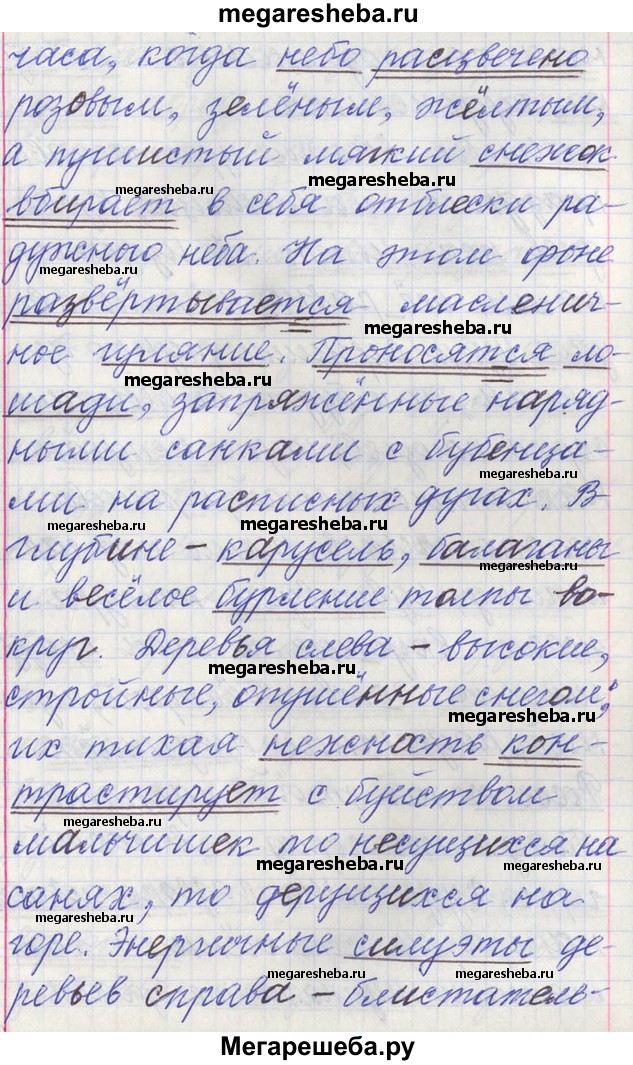 megaresheba.ru
часа, когда небо расцвечено
розовым, зелёным, жёлтым,
а пушистый мягкий снежок
megaresheba.ru
megaresheba.ru
вбирает в себя отблески ра-
дужного неба. На этом фоне
megaresheba.ru
развёртывается масленич-
megaresheba.ru
ное гуляние. Проносятся ло-
megaresheba.ru
шади, запряжённые наряд-
ными санками с бубенца-
megaresheba.ru
ми на расписных дугах. В
megaresheba.ru
megaresheba.ru
глубине – карусель, балаганы
megaresheba.ru
и весёлое бурление толпы во-
круг. Деревья слева – высокие,
megaresheba.ru
стройные, опушённые снегом;
megaresheba.ru
их тихая нежность кон-
трастирует с буйством
megaresheba.ru
мальчишек то несущихся на
megaresheba.ru
megaresheba.ru
санях, то дерущихся на
megaresheba.ru
горе. Энергичные силуэты де-
megaresheba.ru
megaresheba.ru
ревьев справа – блистатель-
Мегарешеба.ру